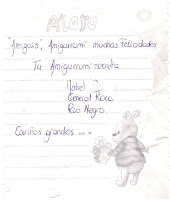 "Amiguis", Amigurrumi muchas Felicidades
Tu Amigurrumi secreta
Mabel
General Roca
Rio Negro
Cariños grandes